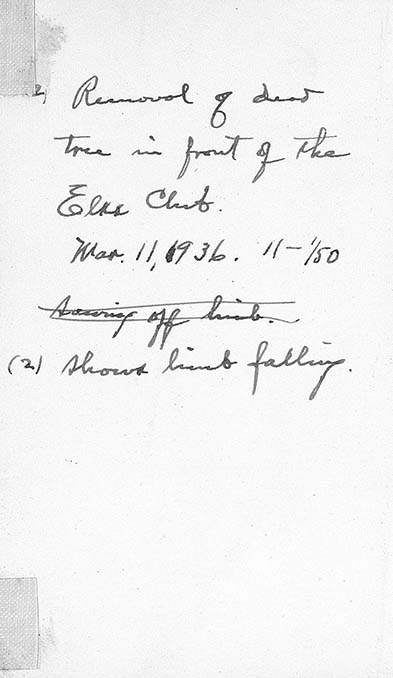 2) Removal of dead
tree in front of the
Elks Club.
Mar. 11, 1936. 11-1/50
Sawing off limb.
(2) shows limb falling.